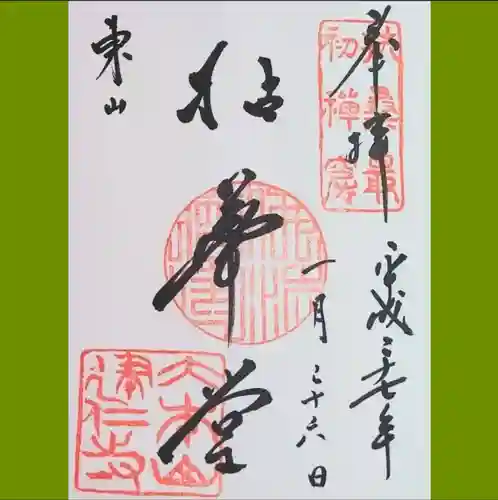 奉拝
平成二十七年
一月二十六日
拈華堂
東山
大本山
建仁寺